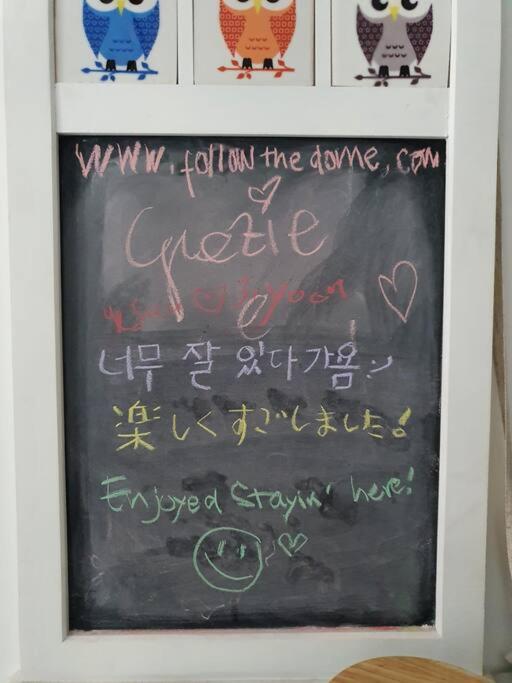 www.followthedome.com
Grazie
너무 잘 있다 가욤:)
楽しくすごしました!
Enjoyed Stayin' here!